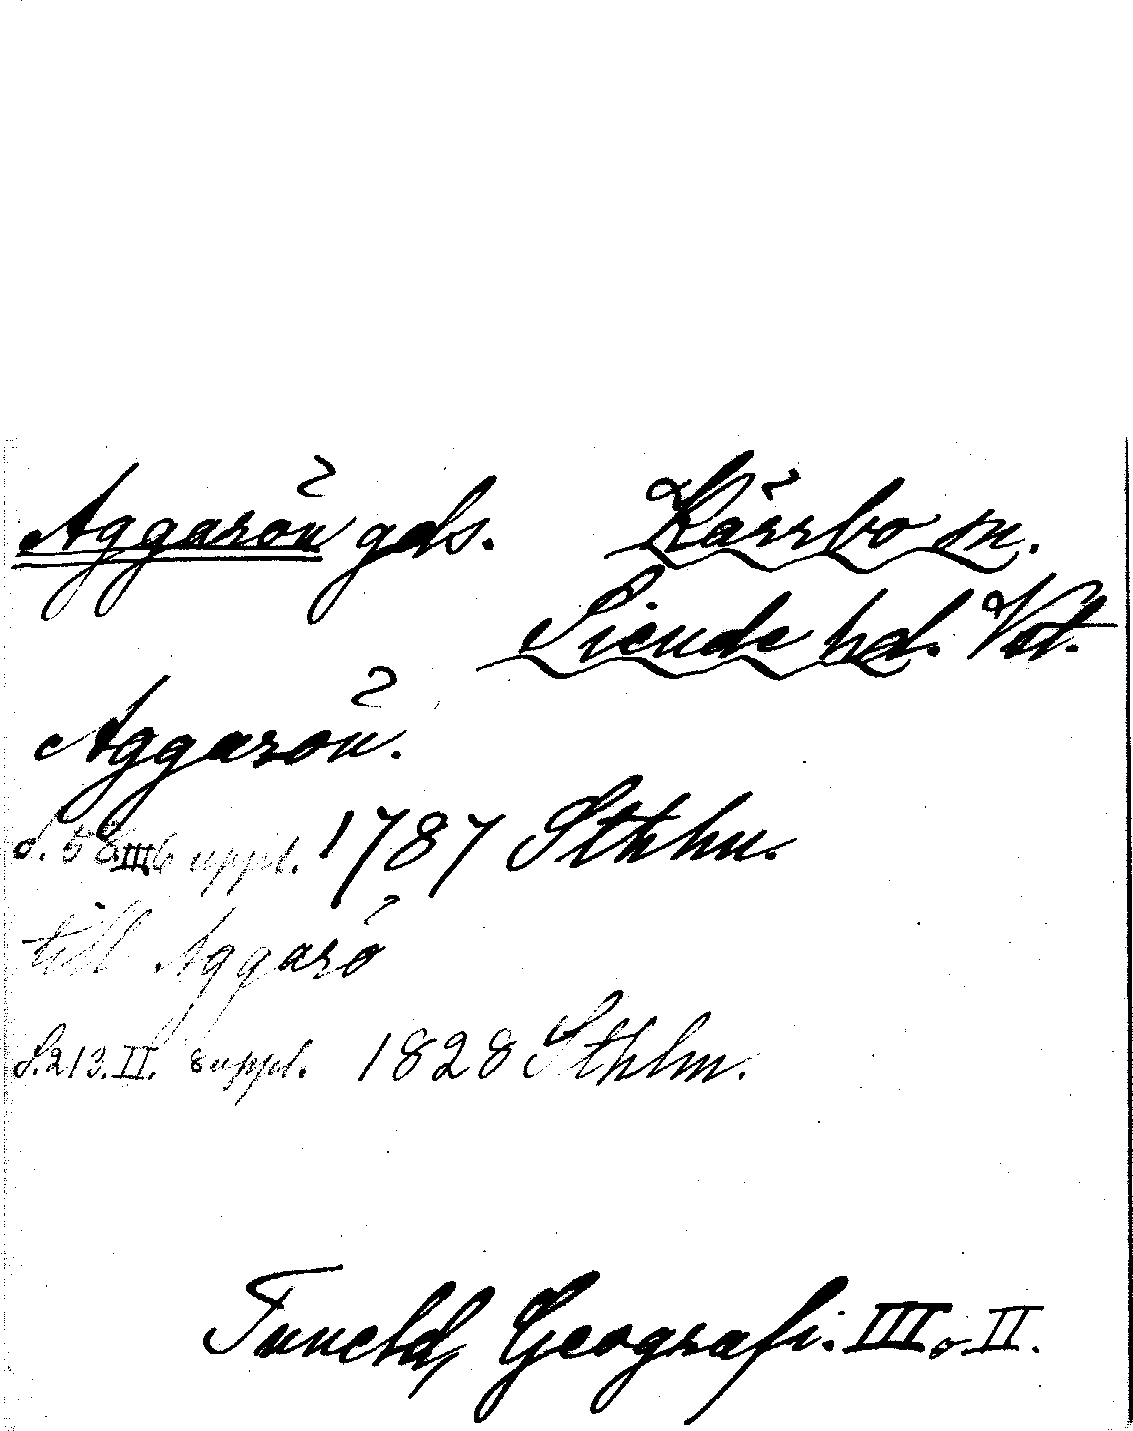 Aggarön gds. Kärrbo sn.
Siende hd. Vstl.
Aggarön.
S. 58. III. 6 uppl. 1787 Sthlm.
till Aggarö
S. 213. II. 8 uppl. 1828 Sthlm.
Tuneld, Geografi. III o. II.